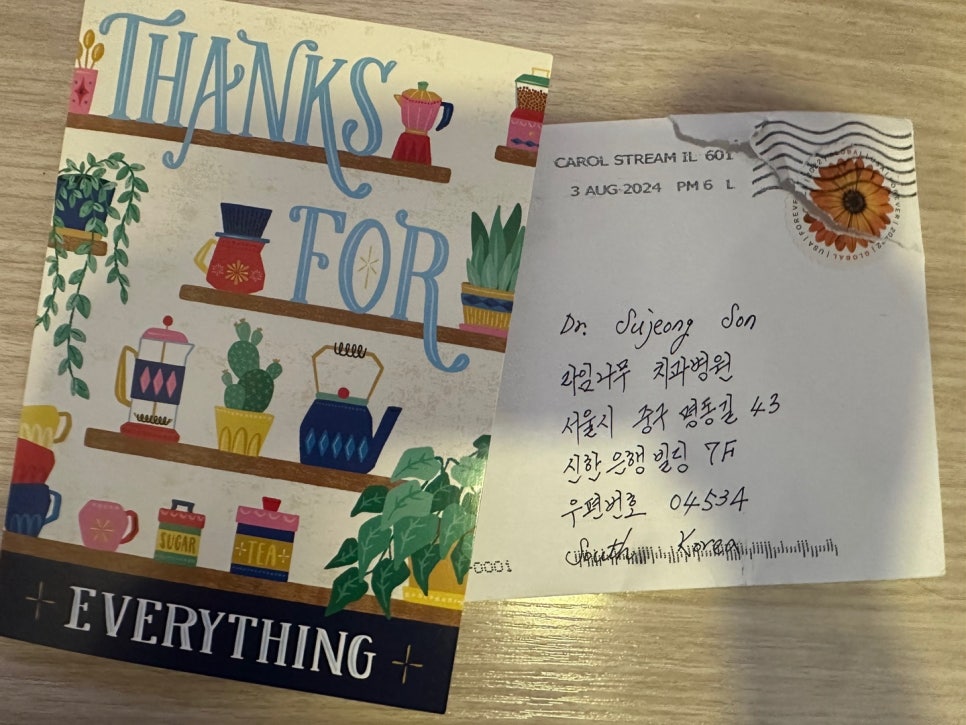 THANKS
FOR
SUGAR
TEA
EVERYTHING
CAROL STREAM IL 601
3 AUG 2024 PM 6 L
FOREVER
GLOBAL
USA
Dr. Sujeong Son
라임나무 치과병원
서울시 중구 명동길 43
신한은행빌딩 7F
우편번호 04534
South Korea
-0001